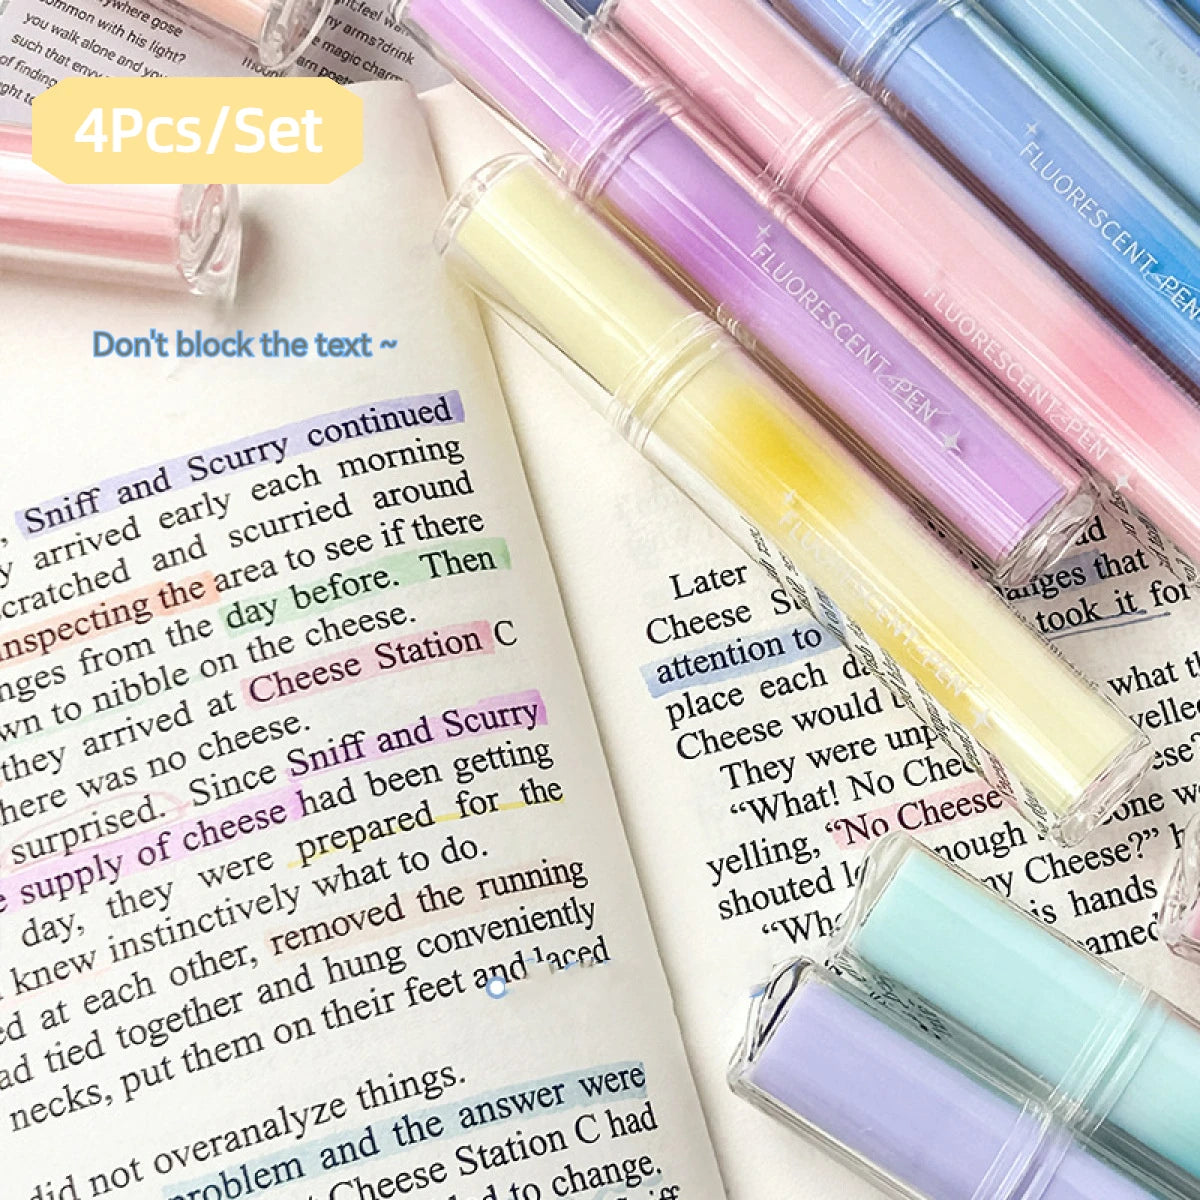 ywhere gose
ommon with his light?
you walk alone and you
such that envy
of finding
ght to
ht, feel
my arms? drink
e magic charm
4Pcs/Set
Don't block the text ~
FLUORESCENT PEN
FLUORESCENT PEN
FLUORESCENT PEN
FLUORESCENT PEN
, Sniff and Scurry continued
y arrived early each morning
cratched and scurried around
nspecting the area to see if there
nges from the day before. Then
wn to nibble on the cheese.
they arrived at Cheese Station C
here was no cheese.
surprised. Since Sniff and Scurry
e supply of cheese had been getting
day, they were prepared for the
knew instinctively what to do.
ed at each other, removed the running
ad tied together and hung conveniently
necks, put them on their feet and laced
did not overanalyze things.
problem and the answer were
t Cheese Station C had
d to change.
Sniff
Later
Cheese S
anges that
attention to
took it for
place each da
Cheese would
what th
They were unp
velle
"What! No Chee
ese?
yelling, "No Cheese
one w
shouted l
nough
ny Cheese?" h
"Wha
is hands
amed